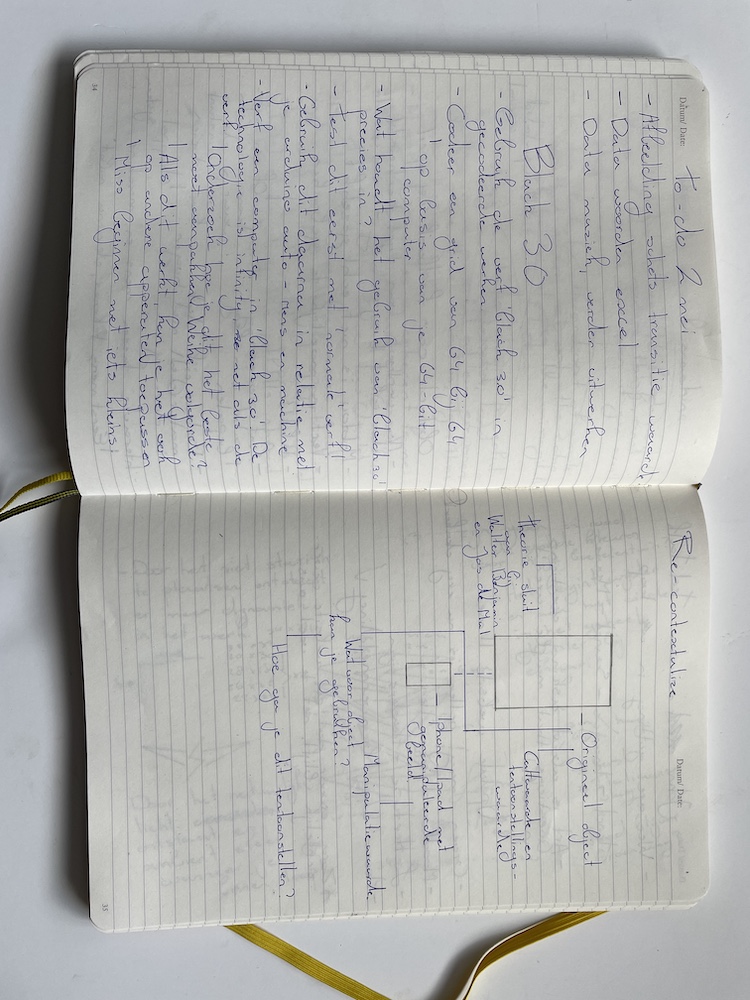 Datum/ Date:
To-do 2 mei
- Afbeelding schets transitie waarde
- Data woorden excel
- Data muziek, verder uitwerken
Black 3.0
- Gebruik de verf 'black 3.0' in
gecodeerde werken
- Codeer een grid van 64 bij 64
op basis van je 64-bit
computer
- Wat houdt het gebruik van 'black 3.0'
precies in?
- Test dit eerst met 'normale' verf!
- Gebruik dit daarna in relatie met
je arduino auto - Mens en machine
- Verf een computer in 'black 3.0'. De
technologie is infinity, net als de
verf.
Onderzoek hoe je dit het beste
moet aanpakken. Welke volgorde?
Als dit werkt, kan je het ook
op andere apparaten toepassen
Miss beginnen met iets kleins.
34
Re-contextulize
Datum/ Date:
- Origineel object
Cultwaarde en
tentoonstellings-
waarde
theorie sluit
aan bij
Walter Benjamin
en Jos de Mul
- Iphone/Ipad met
gemanipuleerde
beeld.
Manipulatiewaarde
Wat voor object
kan je gebruiken?
Hoe ga je dit tentoonstellen?
35